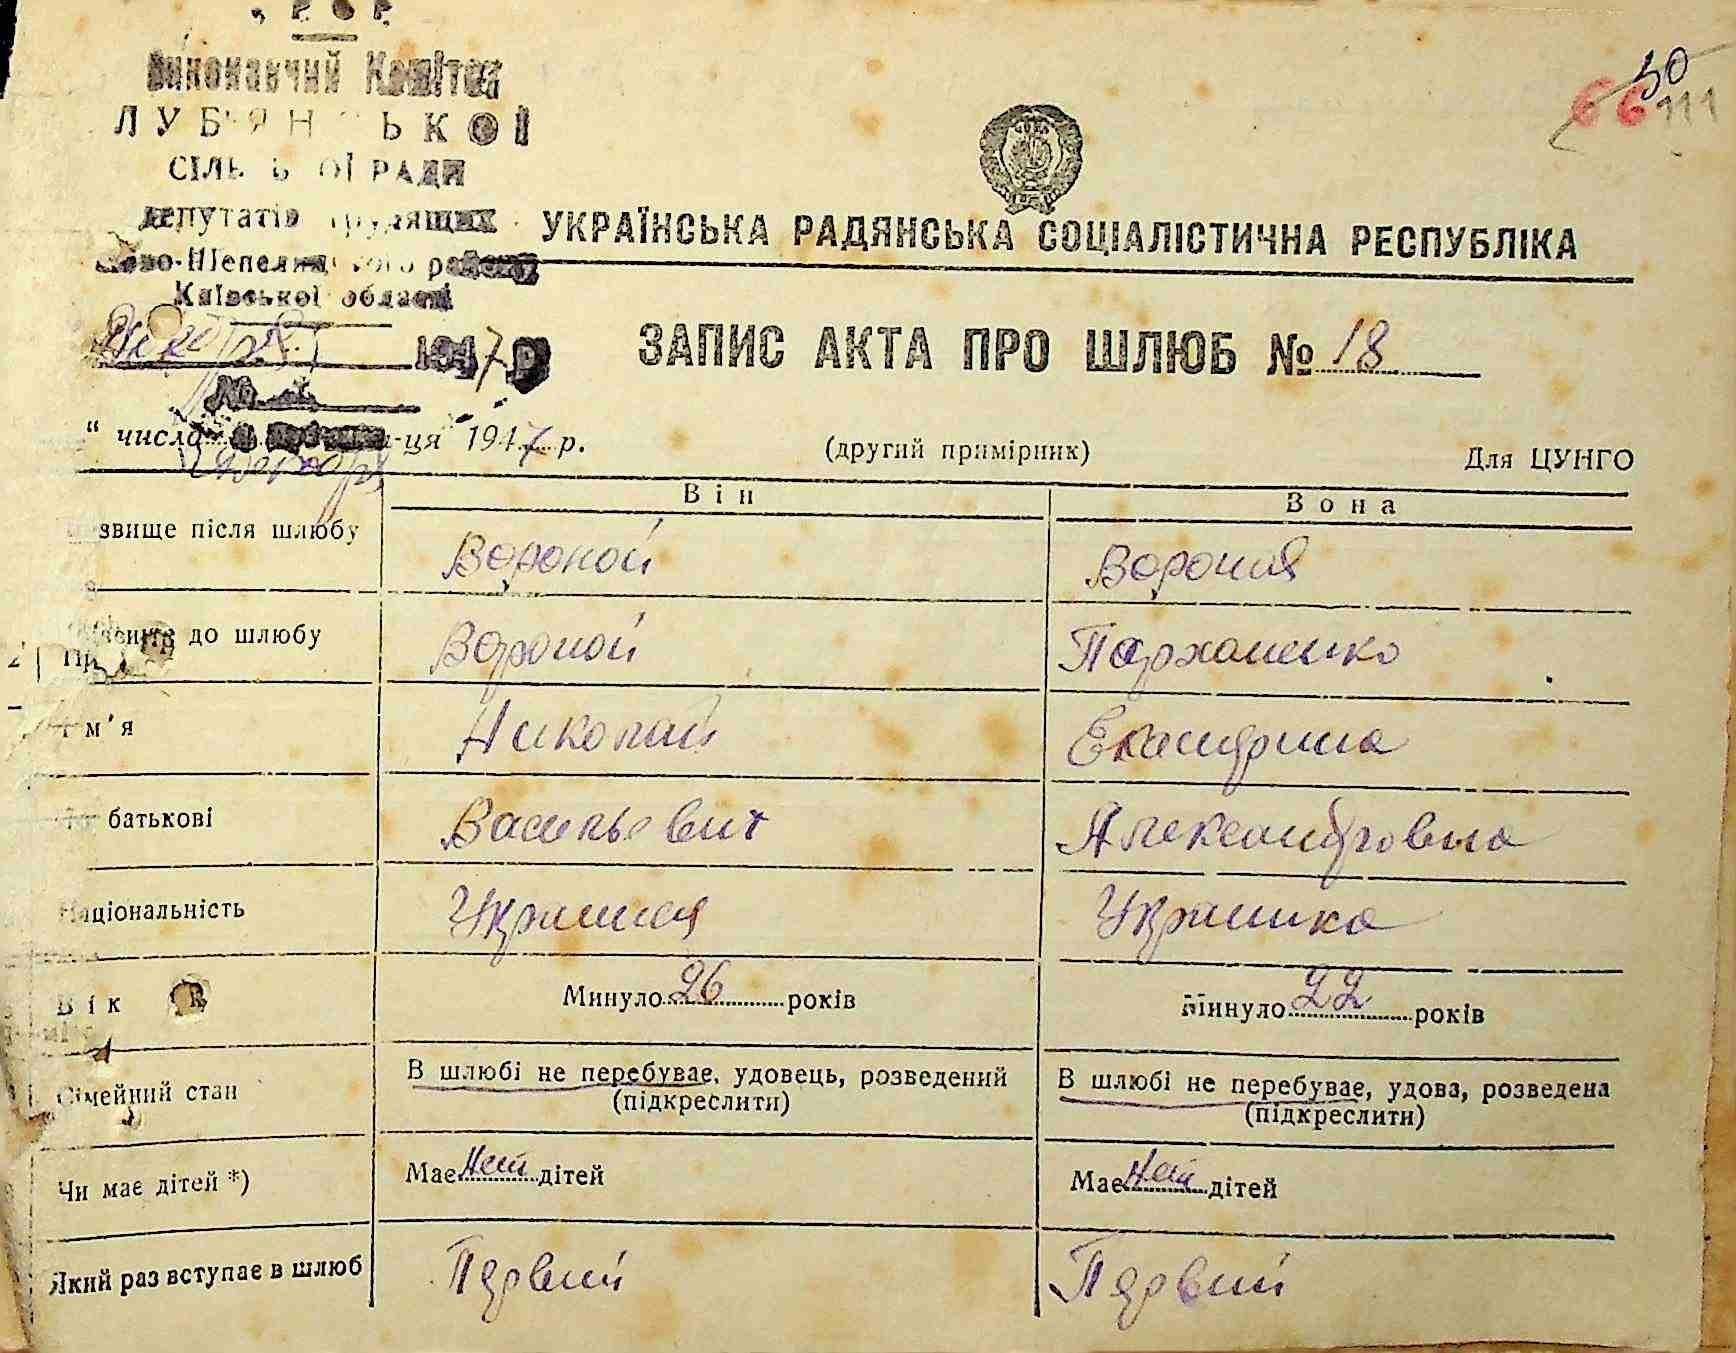 Виконавчий Комітет
ЛУБ'ЯНСЬКОЇ
СІЛЬСЬКОЇ РАДИ
депутатів трудящих
Ново-Шепелицького району
Київської області
1947 р.
№
50
66 111
УКРАЇНСЬКА РАДЯНСЬКА СОЦІАЛІСТИЧНА РЕСПУБЛІКА
ЗАПИС АКТА ПРО ШЛЮБ № 18
“ числа -ця 1947 р.
(другий примірник)
Для ЦУНГО
Він Вона
звище після шлюбу Вороной Вороная
до шлюбу Вороной Пархоменко
м'я Николай Екатерина
батькові Васильевич Александровна
Національність Украинец Украинка
Вік Минуло 26 років Минуло 22 років
Сімейний стан В шлюбі не перебуває, удовець, розведений В шлюбі не перебуває, удова, розведена
(підкреслити) (підкреслити)
Чи має дітей *) Має нет дітей Має нет дітей
Який раз вступає в шлюб Первий Первий